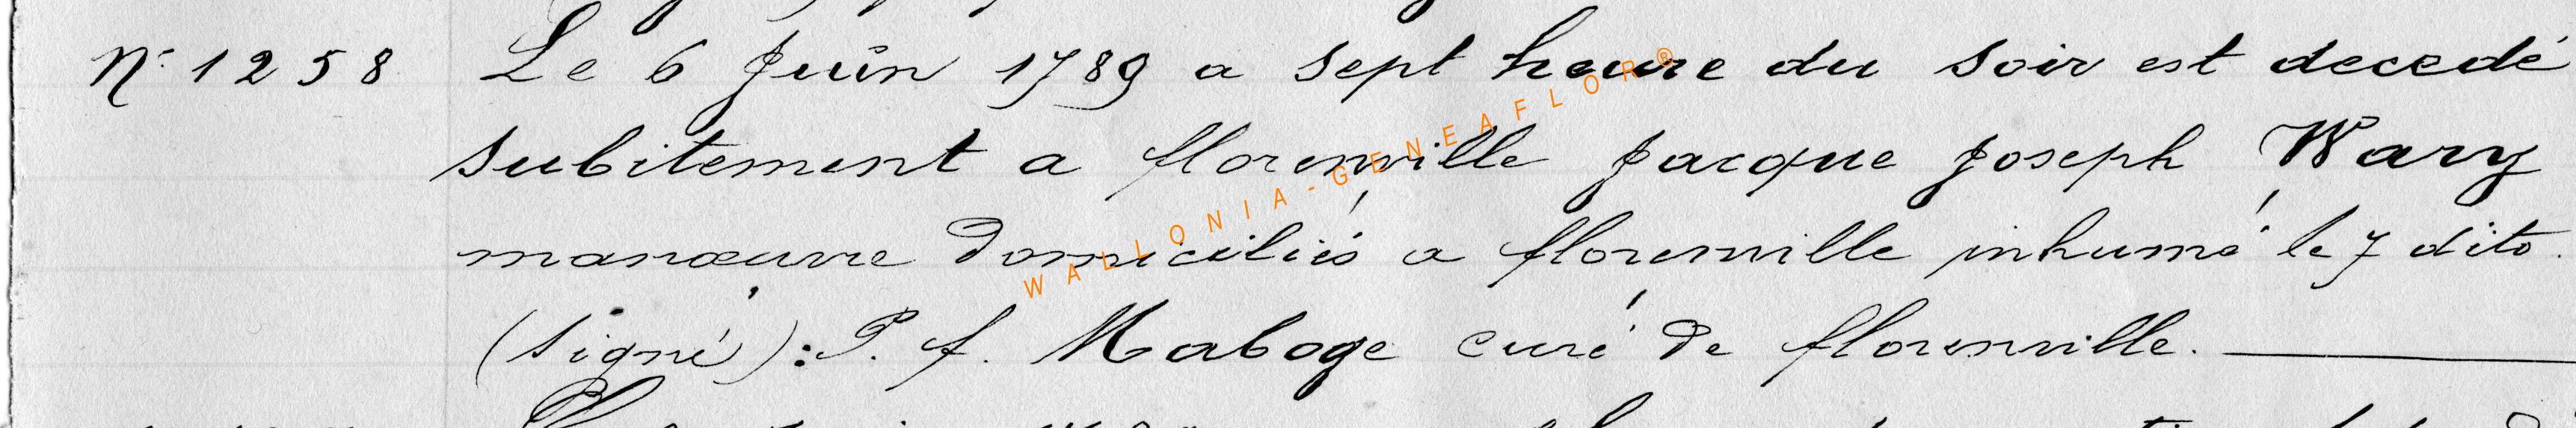 N° 1258 Le 6 Juin 1789 a sept heure du soir est decedé
subitement a florenville Jacque Joseph Wary
manœuvre Domiciliés a florenville inhumé le 7 dito.
(signé): P. f. Maboge curé De florenville.
WALLONIA-GENEAFLOR®